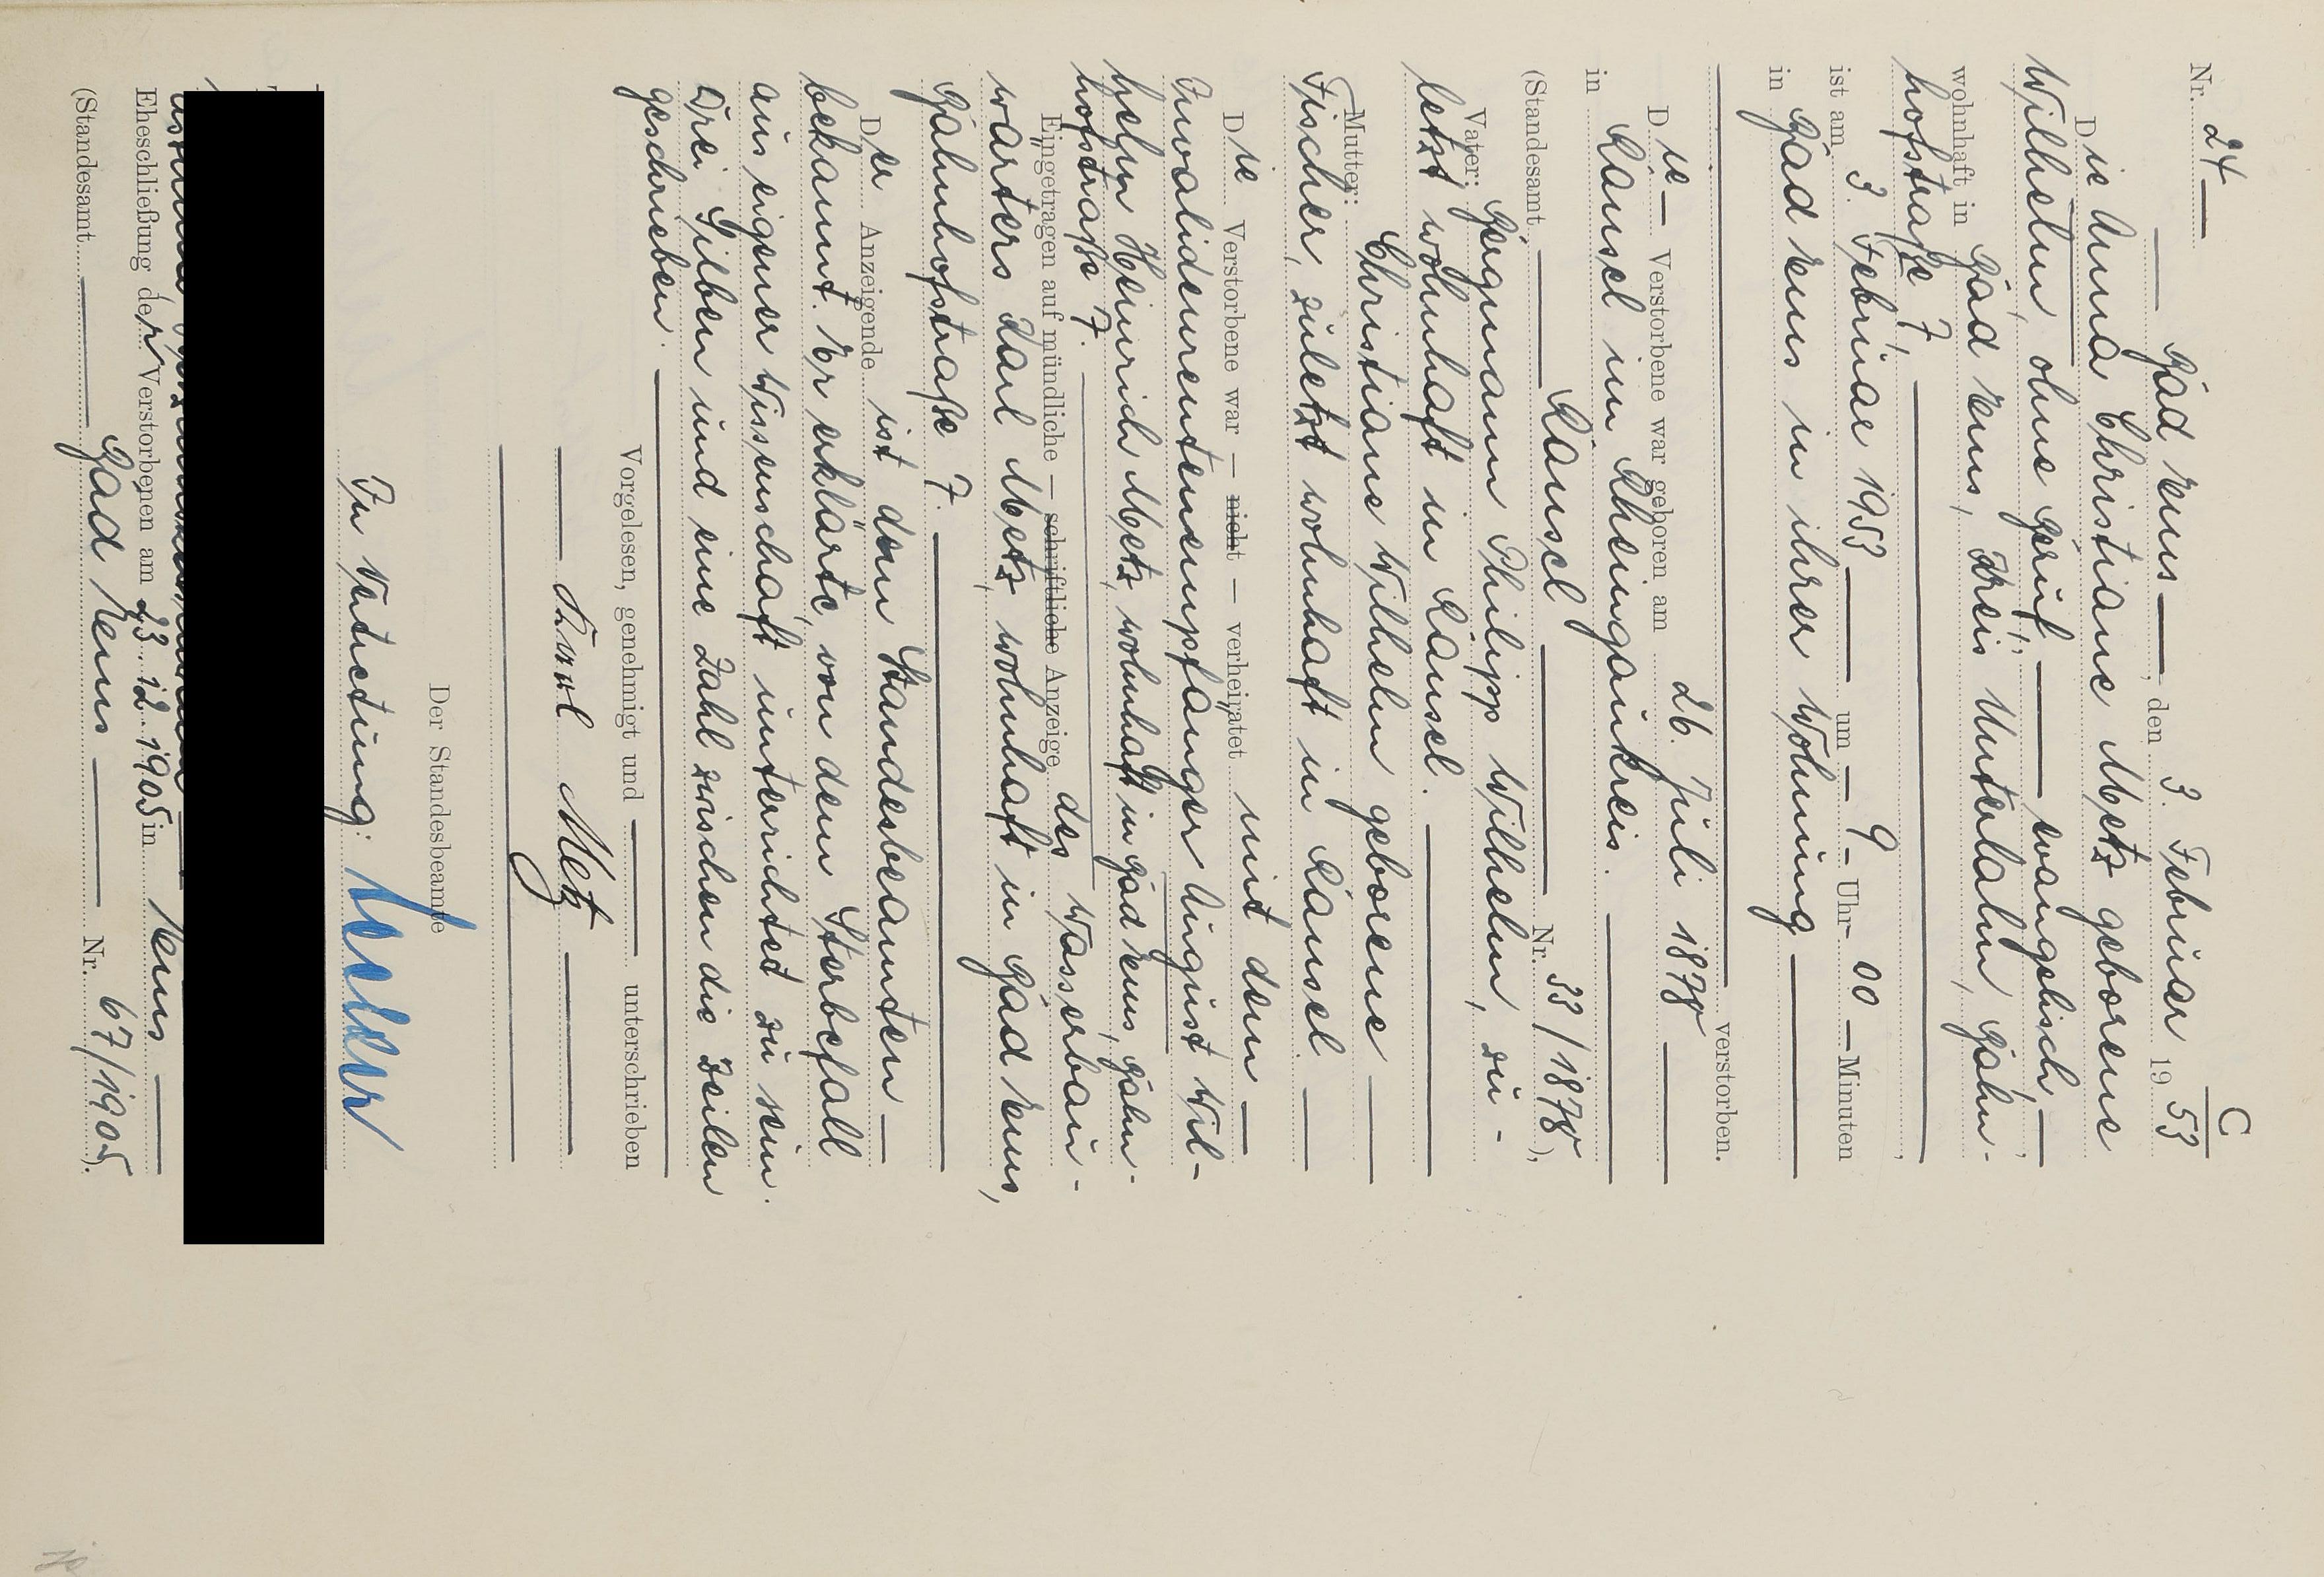 C
Nr. 24
Bad Ems, den 3. Februar 1953
Die Anna Christiane Metz geborene
Wilhelm, ohne Beruf, evangelisch,
wohnhaft in Bad Ems, Kreis Unterlahn, Bahn-
hofstraße 7,
ist am 3. Februar 1953 um 9 Uhr 00 Minuten
in Bad Ems in ihrer Wohnung
verstorben.
Die Verstorbene war geboren am 26. Juli 1878
in Ransel im Rheingaukreis.
(Standesamt Ransel Nr. 33/1878),
Vater: Bergmann Philipp Wilhelm, zu-
letzt wohnhaft in Ransel.
Mutter: Christiane Wilhelm geborene
Fischer, zuletzt wohnhaft in Ransel.
Die Verstorbene war — nicht — verheiratet mit dem
Invalidenrentenempfänger August Wil-
helm Heinrich Metz, wohnhaft in Bad Ems, Bahn-
hofstraße 7.
Eingetragen auf mündliche — schriftliche Anzeige des Wasserbau-
warters Karl Metz, wohnhaft in Bad Ems,
Bahnhofstraße 7.
Der Anzeigende ist dem Standesbeamten
bekannt. Er erklärte, von dem Sterbefall
aus eigener Wissenschaft unterrichtet zu sein.
Drei Silben und eine Zahl zwischen die Zeilen
geschrieben.
Vorgelesen, genehmigt und unterschrieben
Karl Metz
Der Standesbeamte
In Vertretung:
Eheschließung der Verstorbenen am 23.12.1905 in Ems
(Standesamt Bad Ems Nr. 67/1905).